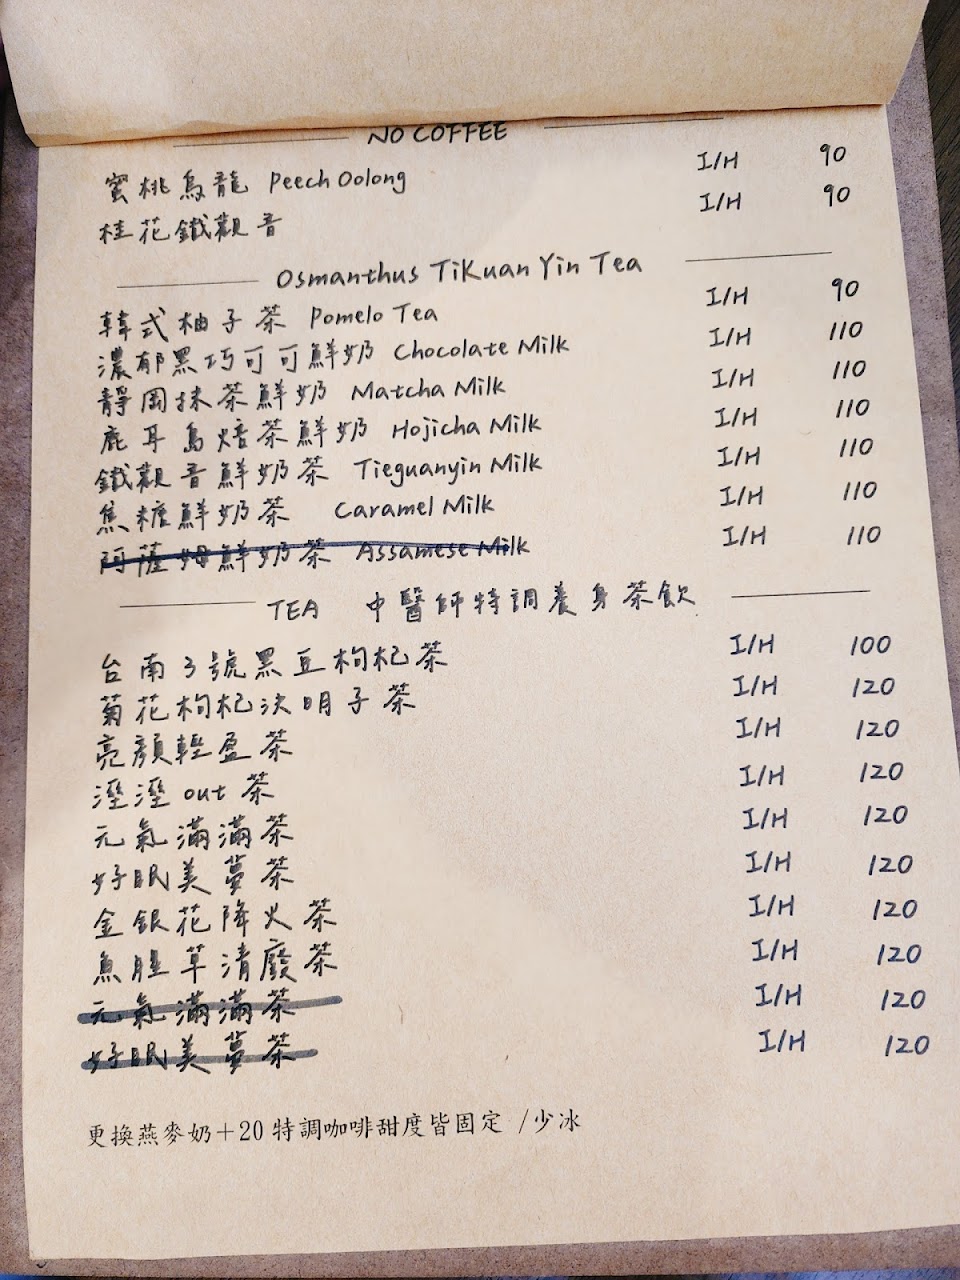 NO COFFEE
蜜桃烏龍 Peech Oolong I/H 90
桂花鐵觀音 I/H 90
Osmanthus TiKuan Yin Tea
韓式柚子茶 Pomelo Tea I/H 90
濃郁黑巧可可鮮奶 Chocolate Milk I/H 110
靜岡抹茶鮮奶 Matcha Milk I/H 110
鹿耳島焙茶鮮奶 Hojicha Milk I/H 110
鐵觀音鮮奶茶 Tieguanyin Milk I/H 110
焦糖鮮奶茶 Caramel Milk I/H 110
阿薩姆鮮奶茶 Assamese Milk I/H 110
TEA 中醫師特調養身茶飲
台南3號黑豆枸杞茶 I/H 100
菊花枸杞決明子茶 I/H 120
亮顏輕盈茶 I/H 120
溼溼out茶 I/H 120
元氣滿滿茶 I/H 120
好眠美夢茶 I/H 120
金銀花降火茶 I/H 120
魚腥草清廢茶 I/H 120
元氣滿滿茶 I/H 120
好眠美夢茶 I/H 120
更換燕麥奶+20 特調咖啡甜度皆固定 /少冰